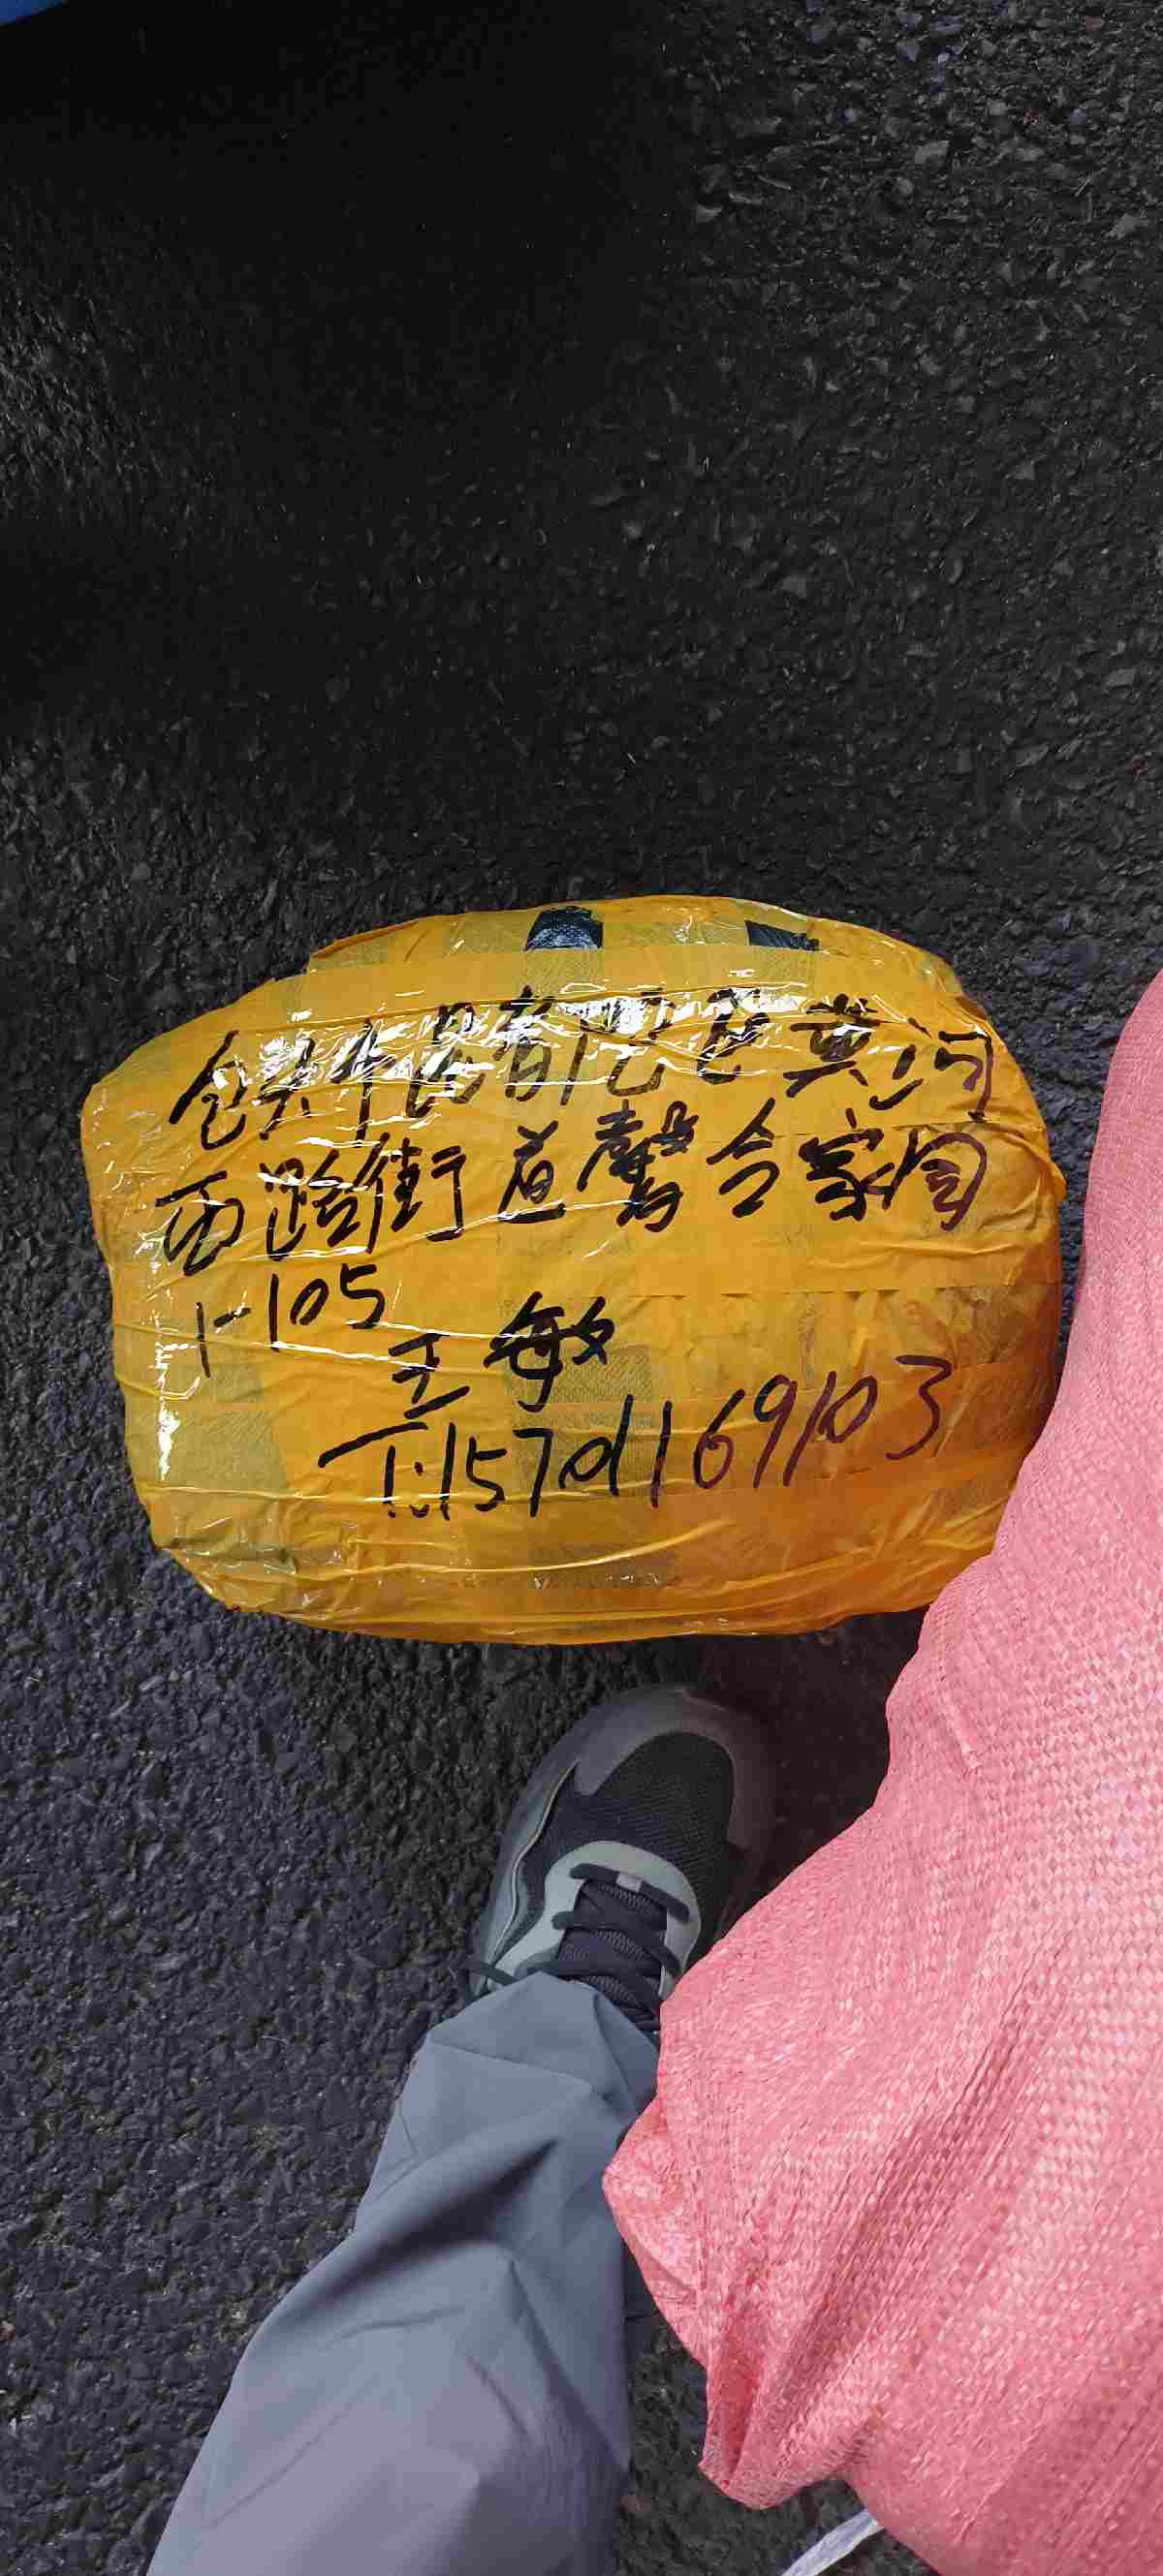 包头市昆都仑区黄河
西路街道馨合家园
1-105
王敏
T:15701169103